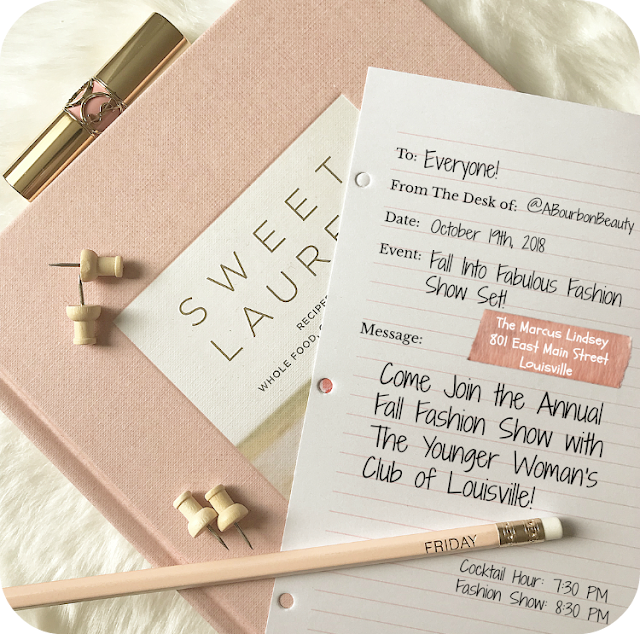 SWEET
LAURE
RECIPE
WHOLE FOOD,
To: Everyone!
From The Desk of: @ABourbonBeauty
Date: October 19th, 2018
Event: Fall Into Fabulous Fashion
Show Set!
The Marcus Lindsey
801 East Main Street
Louisville
Message:
Come Join the Annual
Fall Fashion Show with
The Younger Woman's
Club of Louisville!
FRIDAY
Cocktail Hour: 7:30 PM
Fashion Show: 8:30 PM